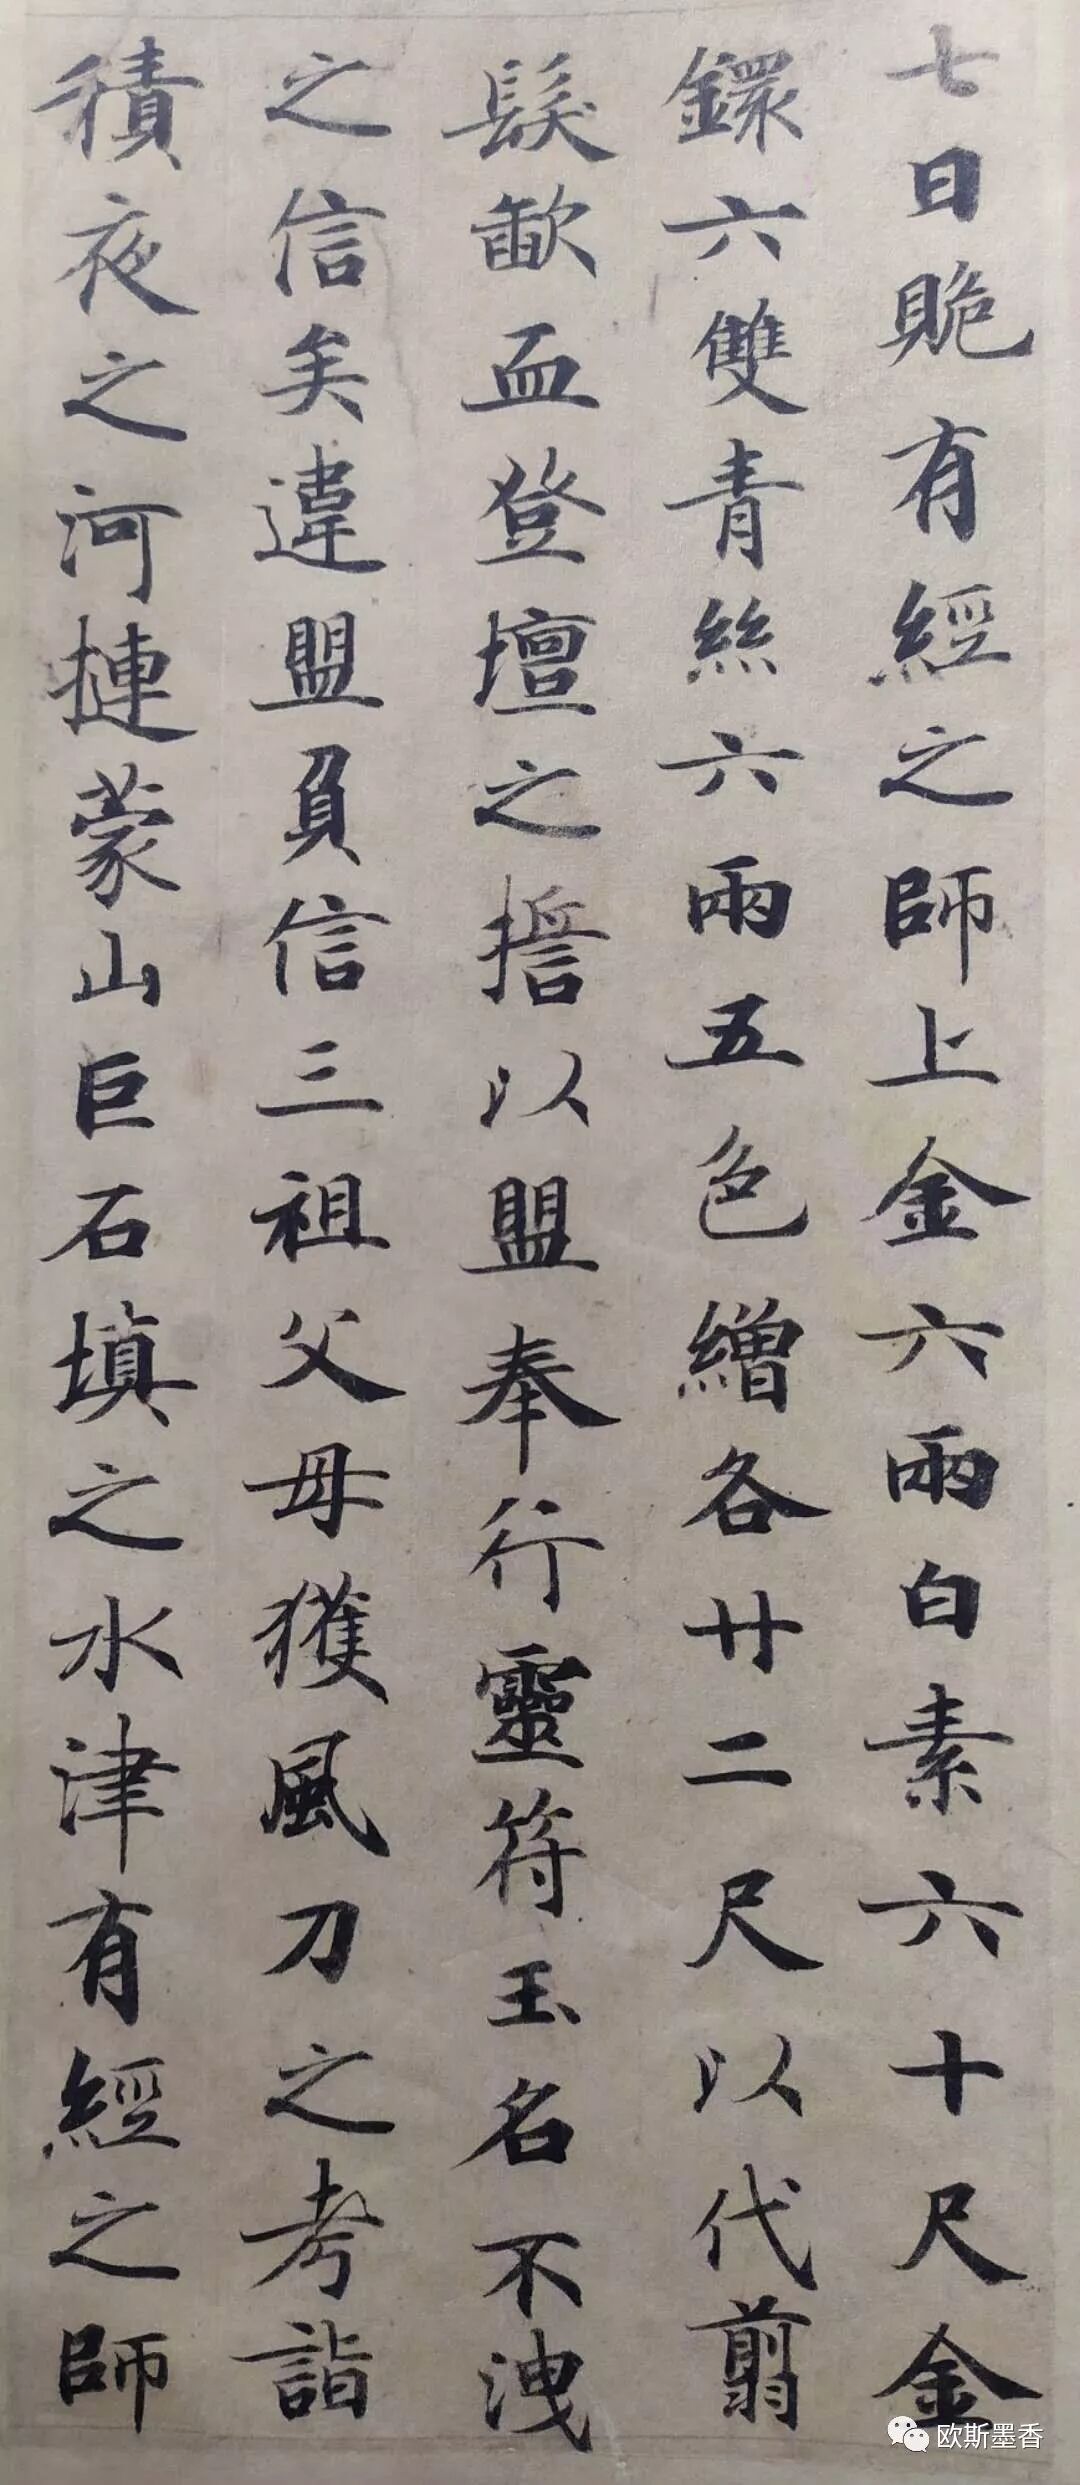 七日跪有經之師上金六兩白素六十尺金
鐶六雙青絲六兩五色繒各廿二尺以代翦
髮歃血登壇之擔以盟奉行靈符玉名不洩
之信矣違盟負信三祖父母獲風刀之考詣
積夜之河摙蒙山巨石填之水津有經之師
欧斯墨香